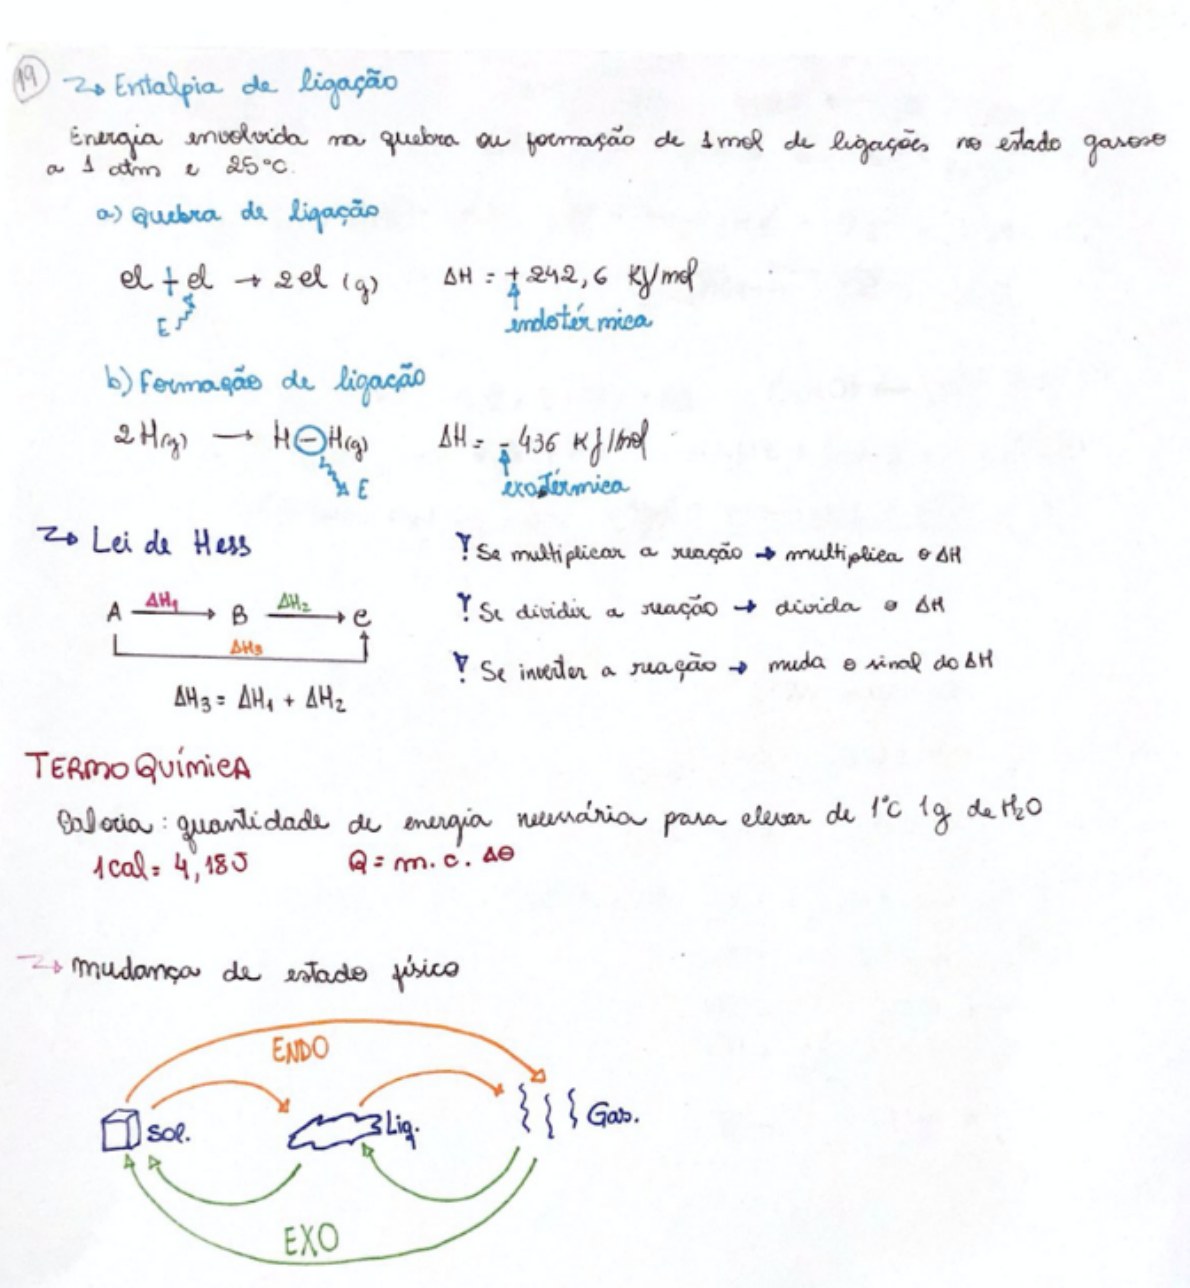 19
Entalpia de ligação
Energia envolvida na quebra ou formação de 1 mol de ligações no estado gasoso
a 1 atm e 25°C.
a) Quebra de ligação
Cl + Cl → 2Cl (g) ΔH = +242,6 KJ/mol
E endotérmica
b) Formação de ligação
2H(g) → H-H(g) ΔH = -436 KJ/mol
E exotérmica
Lei de Hess
! Se multiplicar a reação → multiplica o ΔH
A ΔH₁ → B ΔH₂ → C
! Se dividir a reação → divida o ΔH
ΔH₃
! Se inverter a reação → muda o sinal do ΔH
ΔH₃ = ΔH₁ + ΔH₂
TERMOQUÍMICA
Caloria: quantidade de energia necessária para elevar de 1°C 1g de H₂O
1cal = 4,18J Q = m.c.Δθ
Mudança de estado físico
ENDO
Sol. Liq. Gas.
EXO